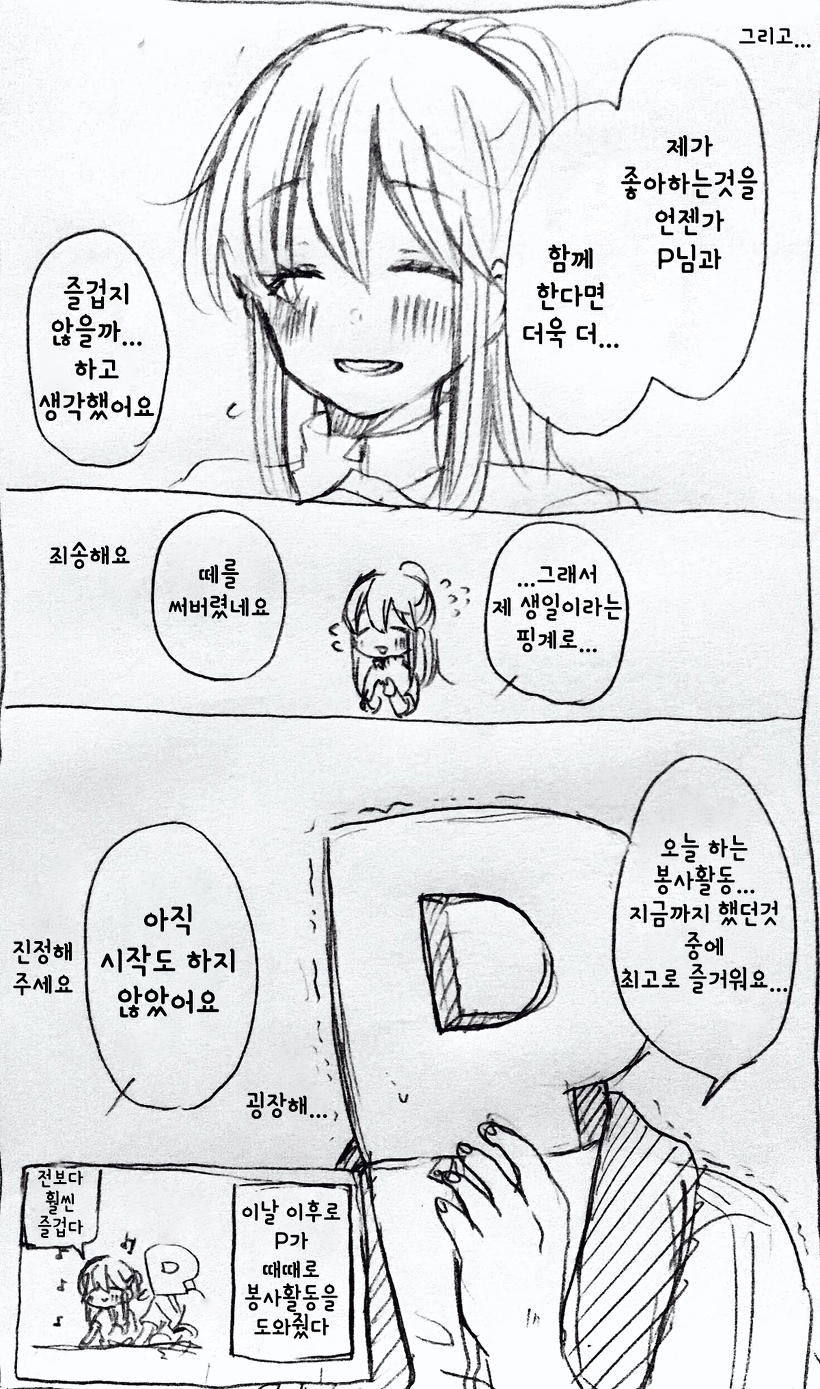 그리고...
제가
좋아하는것을
언젠가
P님과
함께
한다면
더욱 더...
즐겁지
않을까...
하고
생각했어요
...그래서
제 생일이라는
핑계로...
떼를
써버렸네요
죄송해요
오늘 하는
봉사활동...
지금까지 했던것
중에
최고로 즐거워요...
굉장해...
아직
시작도 하지
않았어요
진정해
주세요
이날 이후로
P가
때때로
봉사활동을
도와줬다
전보다
훨씬
즐겁다